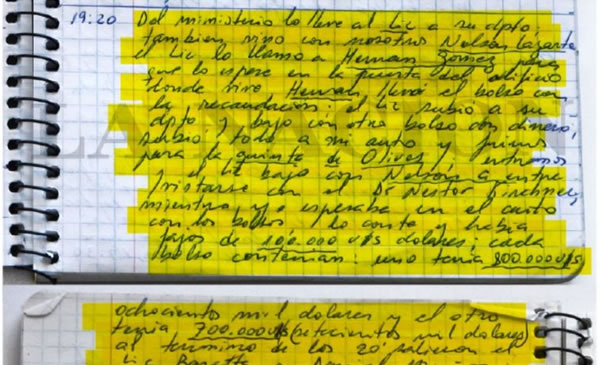 19:20 Del ministerio lo lleve al Lic a su dpto,
tambien vino con nosotros Nelson Lazarte,
el Lic lo llamo a Hernan Gomez para
que lo espere en la puerta del edificio
donde vive Hernan llevó el bolso con
la recaudacion: el Lic subió a su
dpto y bajo con otro bolso con dinero,
subio todo a mi auto y fuimos
para la quinta de Olivos / entramos
y el Lic bajo con Nelson a entre
vistarse con el Dr Nestor Kirchner,
mientras yo esperaba en el auto
con los bolsos / lo conte y habia
fajos de 100.000 u$s dolares; cada
bolso contenian: uno tenia 800.000 u$s
LA NACION
ochocientos mil dolares y el otro
tenia 700.000 u$s (setecientos mil dolares)
al termino de los 20' salieron el
Lic Baratta